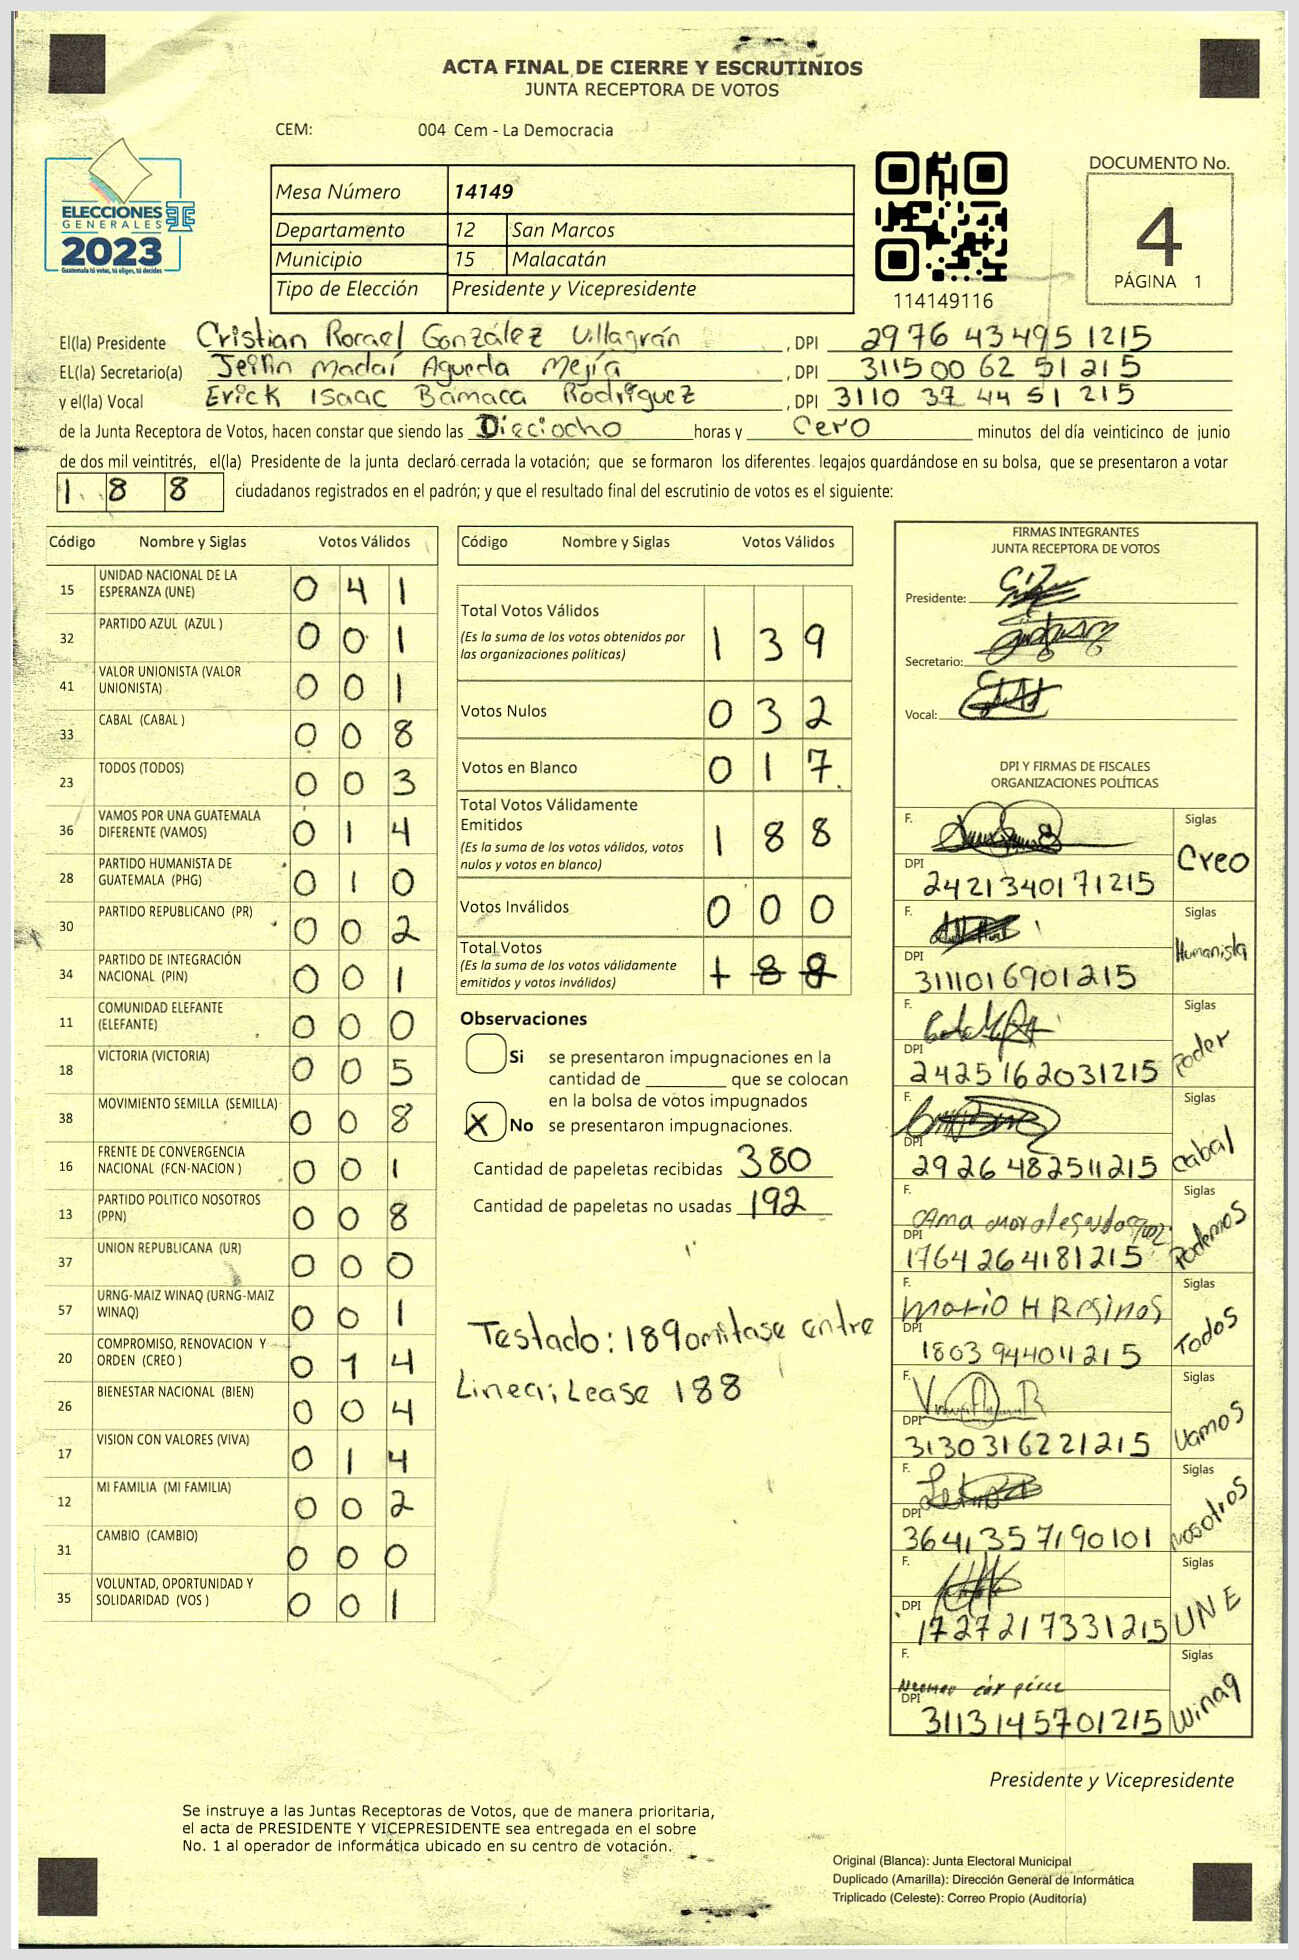 ACTA FINAL DE CIERRE Y ESCRUTINIOS
JUNTA RECEPTORA DE VOTOS
CEM: 004 Cem - La Democracia
ELECCIONES
GENERALES
2023
Guatemala tú votas, tú eliges, tú decides
Mesa Número 14149
Departamento 12 San Marcos
Municipio 15 Malacatán
Tipo de Elección Presidente y Vicepresidente
114149116
DOCUMENTO No.
4
PÁGINA 1
El(la) Presidente Cristian Rorael González Villagrán , DPI 2976 43495 1215
EL(la) Secretario(a) Jeilin Madaí Agueda Mejía , DPI 311500 62 51215
y el(la) Vocal Erick Isaac Bámaca Rodríguez , DPI 3110 37 44 51 215
de la Junta Receptora de Votos, hacen constar que siendo las Dieciocho horas y Cero minutos del día veinticinco de junio
de dos mil veintitrés, el(la) Presidente de la junta declaró cerrada la votación; que se formaron los diferentes legajos guardándose en su bolsa, que se presentaron a votar
1 8 8 ciudadanos registrados en el padrón; y que el resultado final del escrutinio de votos es el siguiente:
Código Nombre y Siglas Votos Válidos
15 UNIDAD NACIONAL DE LA ESPERANZA (UNE) 0 4 1
32 PARTIDO AZUL (AZUL ) 0 0 1
41 VALOR UNIONISTA (VALOR UNIONISTA) 0 0 1
33 CABAL (CABAL ) 0 0 8
23 TODOS (TODOS) 0 0 3
36 VAMOS POR UNA GUATEMALA DIFERENTE (VAMOS) 0 1 4
28 PARTIDO HUMANISTA DE GUATEMALA (PHG) 0 1 0
30 PARTIDO REPUBLICANO (PR) 0 0 2
34 PARTIDO DE INTEGRACIÓN NACIONAL (PIN) 0 0 1
11 COMUNIDAD ELEFANTE (ELEFANTE) 0 0 0
18 VICTORIA (VICTORIA) 0 0 5
38 MOVIMIENTO SEMILLA (SEMILLA) 0 0 8
16 FRENTE DE CONVERGENCIA NACIONAL (FCN-NACION ) 0 0 1
13 PARTIDO POLITICO NOSOTROS (PPN) 0 0 8
37 UNION REPUBLICANA (UR) 0 0 0
57 URNG-MAIZ WINAQ (URNG-MAIZ WINAQ) 0 0 1
20 COMPROMISO, RENOVACION Y ORDEN (CREO ) 0 1 4
26 BIENESTAR NACIONAL (BIEN) 0 0 4
17 VISION CON VALORES (VIVA) 0 1 4
12 MI FAMILIA (MI FAMILIA) 0 0 2
31 CAMBIO (CAMBIO) 0 0 0
35 VOLUNTAD, OPORTUNIDAD Y SOLIDARIDAD (VOS ) 0 0 1
Código Nombre y Siglas Votos Válidos
Total Votos Válidos 1 3 9
(Es la suma de los votos obtenidos por
las organizaciones políticas)
Votos Nulos 0 3 2
Votos en Blanco 0 1 7
Total Votos Válidamente
Emitidos 1 8 8
(Es la suma de los votos válidos, votos
nulos y votos en blanco)
Votos Inválidos 0 0 0
Total Votos
(Es la suma de los votos válidamente
emitidos y votos inválidos) 1 8 8
Observaciones
Si se presentaron impugnaciones en la
cantidad de ________ que se colocan
en la bolsa de votos impugnados
X No se presentaron impugnaciones.
Cantidad de papeletas recibidas 380
Cantidad de papeletas no usadas 192
Testado: 189 omitase entre
Linea; Lease 188
FIRMAS INTEGRANTES
JUNTA RECEPTORA DE VOTOS
Presidente:
Secretario:
Vocal:
DPI Y FIRMAS DE FISCALES
ORGANIZACIONES POLÍTICAS
F. Siglas
DPI 2421340171215 Creo
F. Siglas
DPI 3111016901215 Humanista
F. Siglas
DPI 2425162031215 Poder
F. Siglas
DPI 2926482511215 Cabal
F. Siglas
DPI 1764264181215 Podemos
F. Mario H R Siglas
DPI 1803944011215 Todos
F. Siglas
DPI 3130316221215 Vamos
F. Siglas
DPI 3641357190101 Nosotros
F. Siglas
DPI 1727217331215 UNE
F. Siglas
DPI 3113145701215 Winaq
Presidente y Vicepresidente
Se instruye a las Juntas Receptoras de Votos, que de manera prioritaria,
el acta de PRESIDENTE Y VICEPRESIDENTE sea entregada en el sobre
No. 1 al operador de informática ubicado en su centro de votación.
Original (Blanca): Junta Electoral Municipal
Duplicado (Amarilla): Dirección General de Informática
Triplicado (Celeste): Correo Propio (Auditoría)